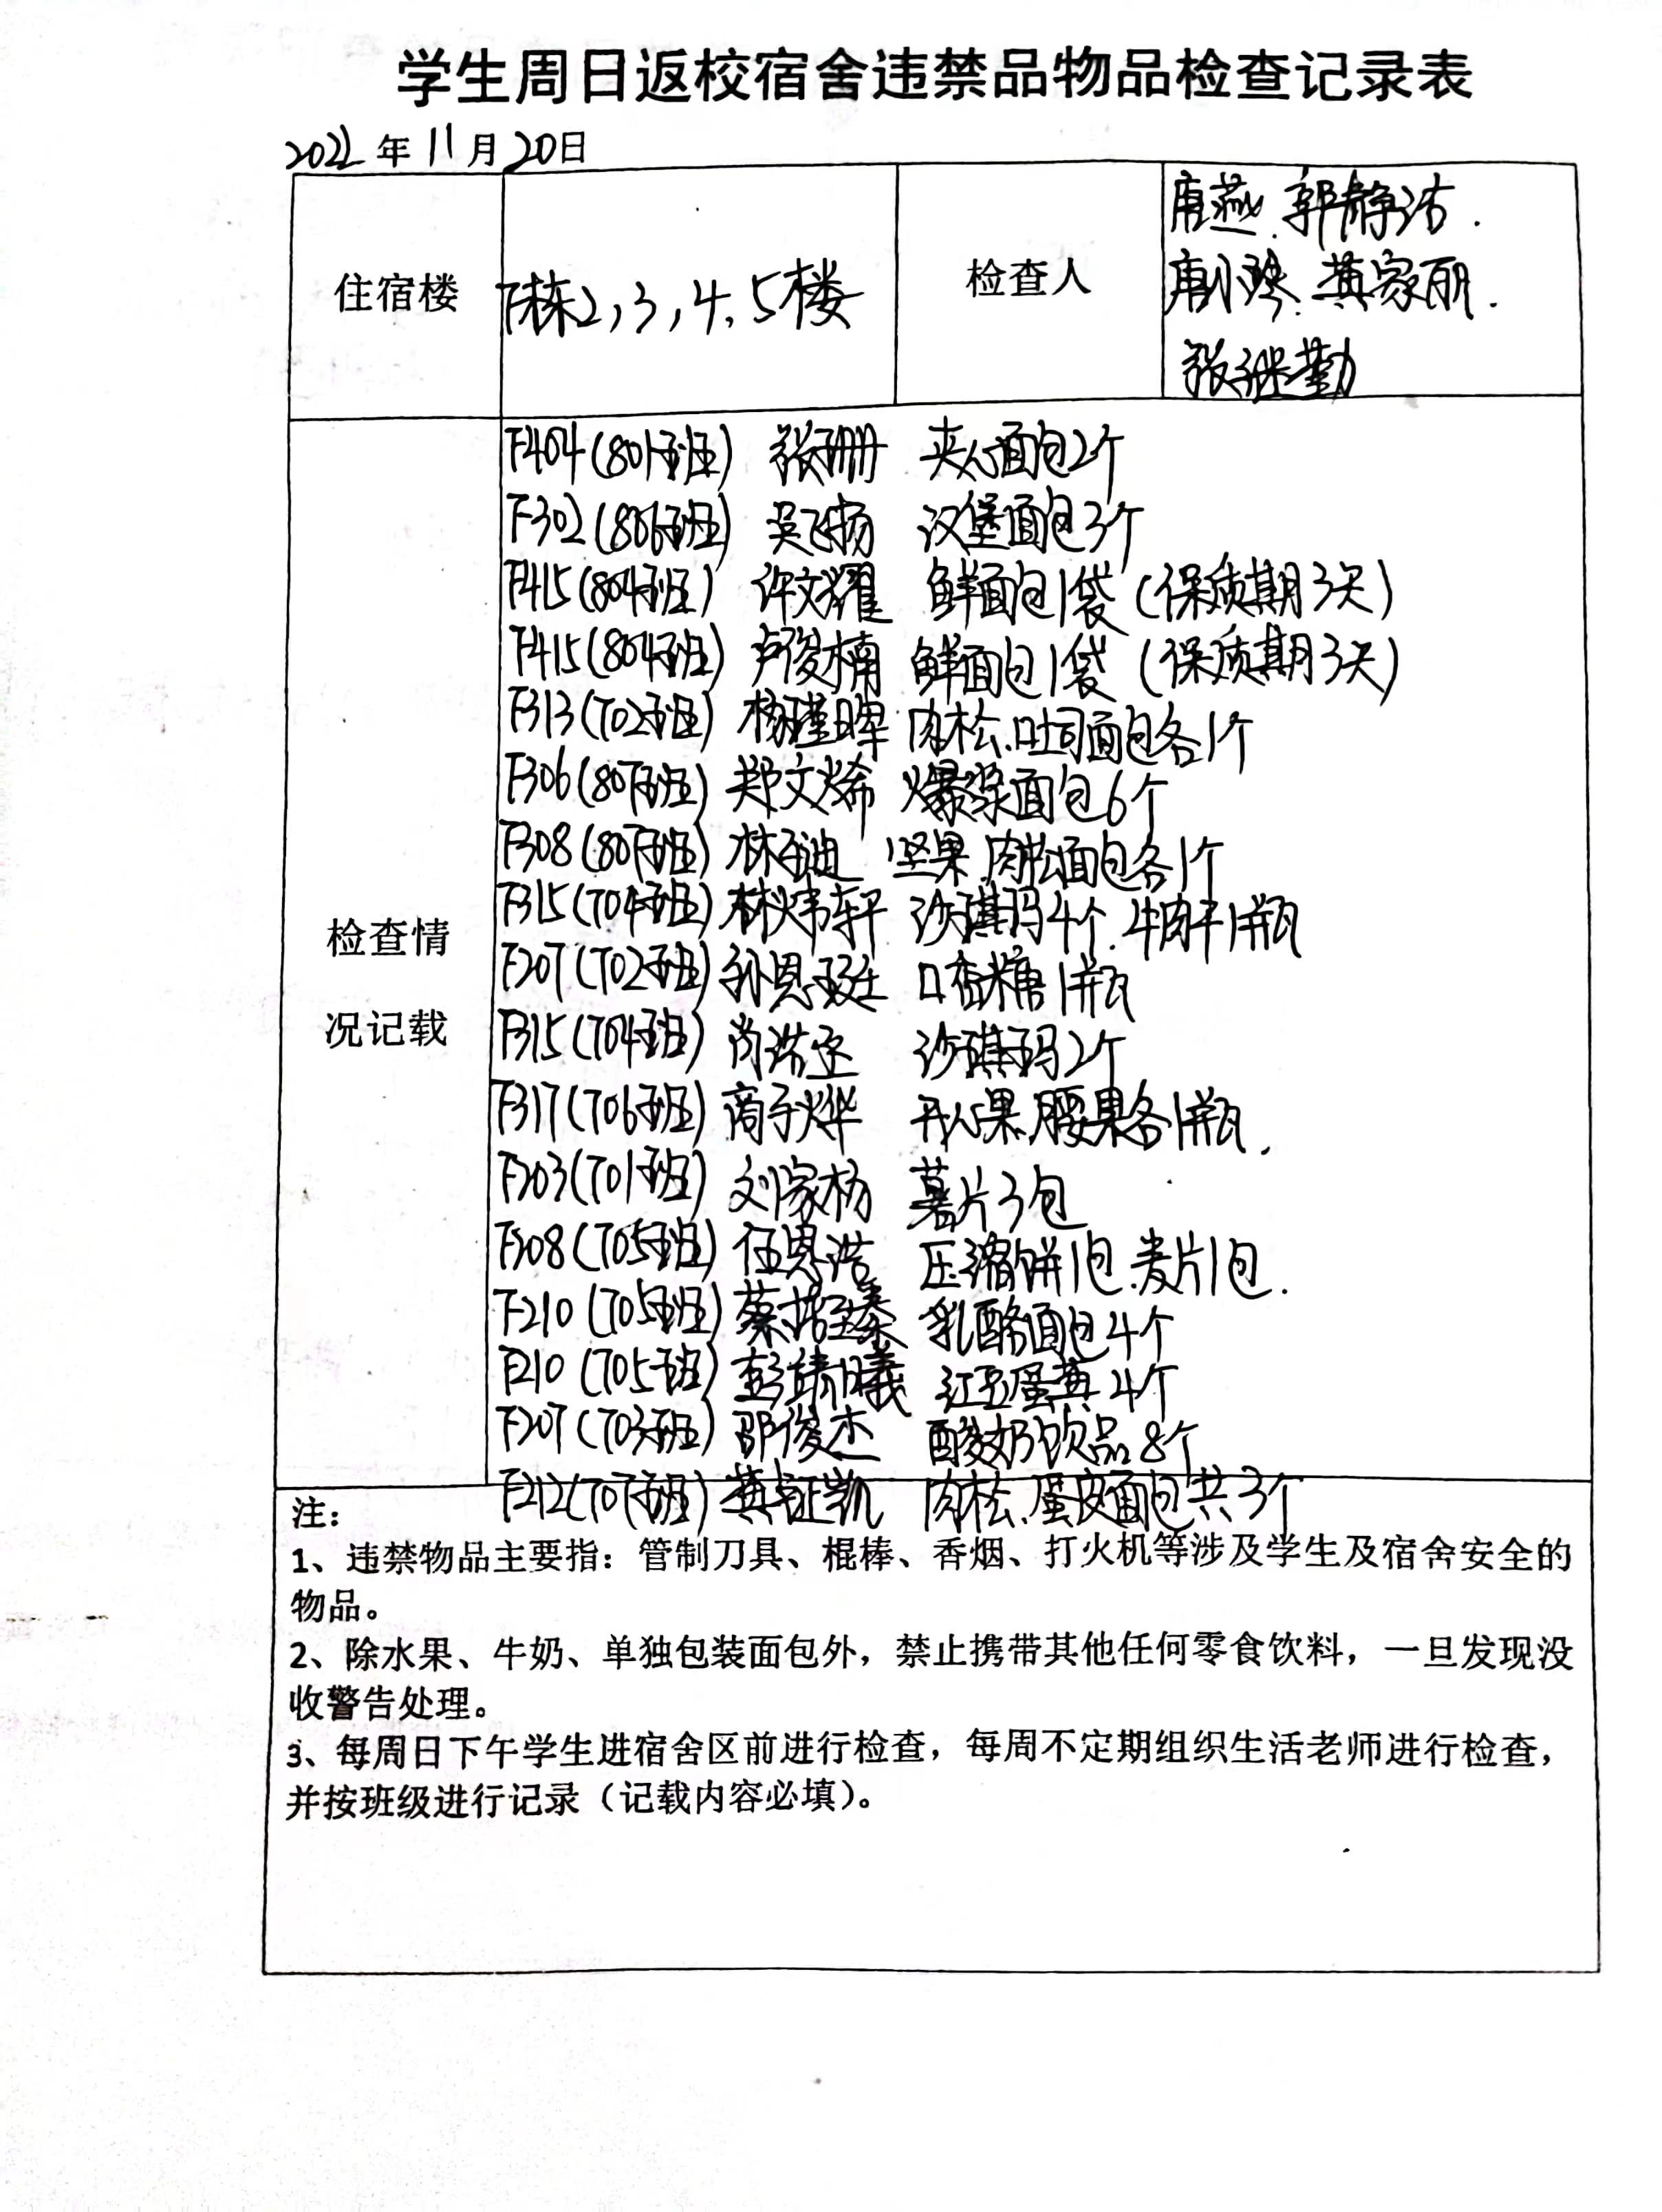 学生周日返校宿舍违禁品物品检查记录表
2022年11月20日
住宿楼
F栋2,3,4,5楼
检查人
唐燕.郭静洁.
唐小琴.黄家丽.
张继勤
检查情
况记载
F404(801班) 张珊 夹心面包2个
F302(806班) 吴飞扬 汉堡面包3个
F415(804班) 许文耀 鲜面包1袋(保质期3天)
F415(804班) 卢俊楠 鲜面包1袋(保质期3天)
F313(702班) 杨瑾晖 肉松.吐司面包各1个
F306(807班) 郑文烯 爆浆面包6个
F308(807班) 林 迪 坚果.肉松面包各1个
F315(704班) 林炜轩 沙琪玛4个.牛肉干1瓶
F207(702班) 孙恩 口香糖1瓶
F315(704班) 肖 沙琪玛2个
F317(706班) 商子烨 开心果.腰果各1瓶.
F203(701班) 刘家杨 薯片3包
F208(705班) 伍恩浩 压缩饼1包.麦片1包.
F210(705班) 蔡 臻 乳酪面包4个
F210(705班) 彭靖曦 红豆蛋黄4个
F207(703班) 邵俊杰 酸奶饮品8个
F212(707班) 黄 凯 肉松.蛋皮面包共3个
注:
1、违禁物品主要指:管制刀具、棍棒、香烟、打火机等涉及学生及宿舍安全的
物品。
2、除水果、牛奶、单独包装面包外,禁止携带其他任何零食饮料,一旦发现没
收警告处理。
3、每周日下午学生进宿舍区前进行检查,每周不定期组织生活老师进行检查,
并按班级进行记录(记载内容必填)。